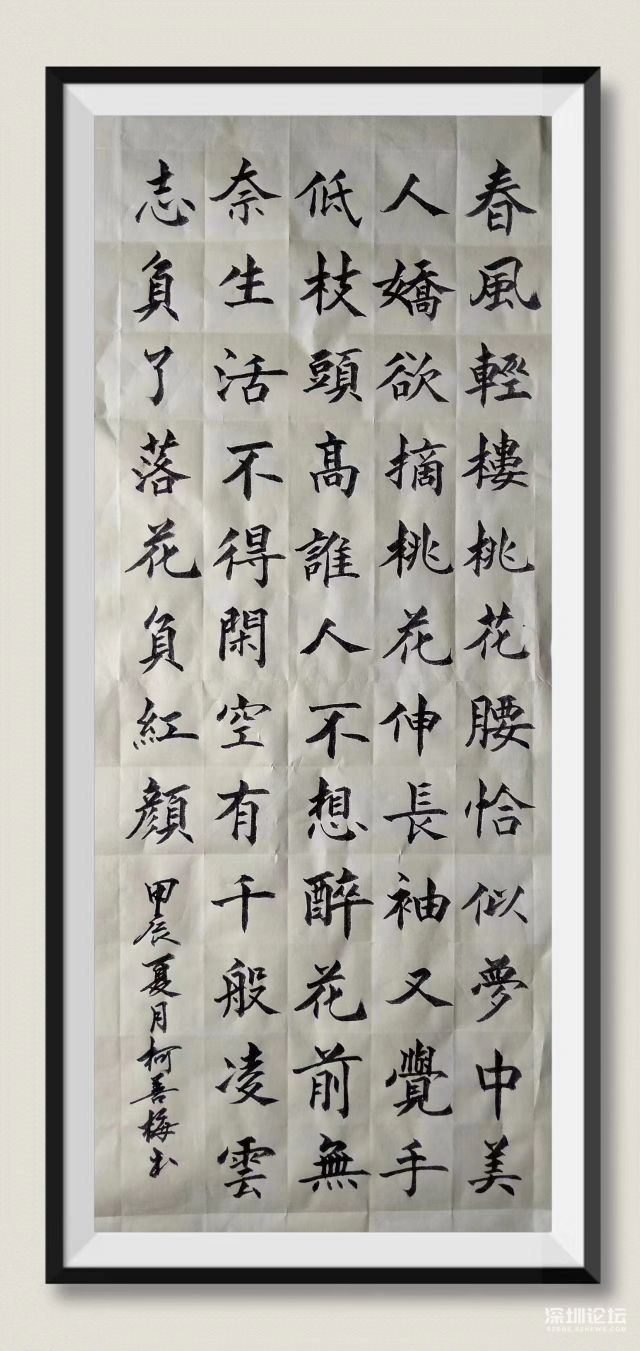 春風輕樓桃花腰恰似夢中美
人嬌欲摘桃花伸長袖又覺手
低枝頭高誰人不想醉花前無
奈生活不得閑空有千般凌雲
志負了落花負紅顏
甲辰夏月柯善梅书
深圳论坛